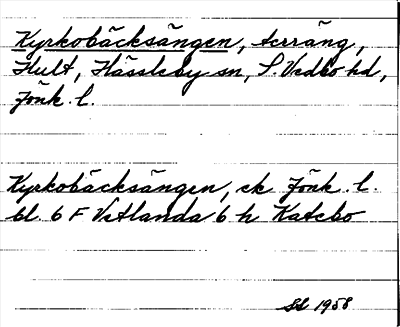 Kyrkobäcksängen, terräng,
Hult, Hässleby sn, S. Vedbo hd,
Jönk. l.
Kyrkobäcksängen, ek Jönk. l.
bl 6 F Vetlanda 6 h Katebo
1958